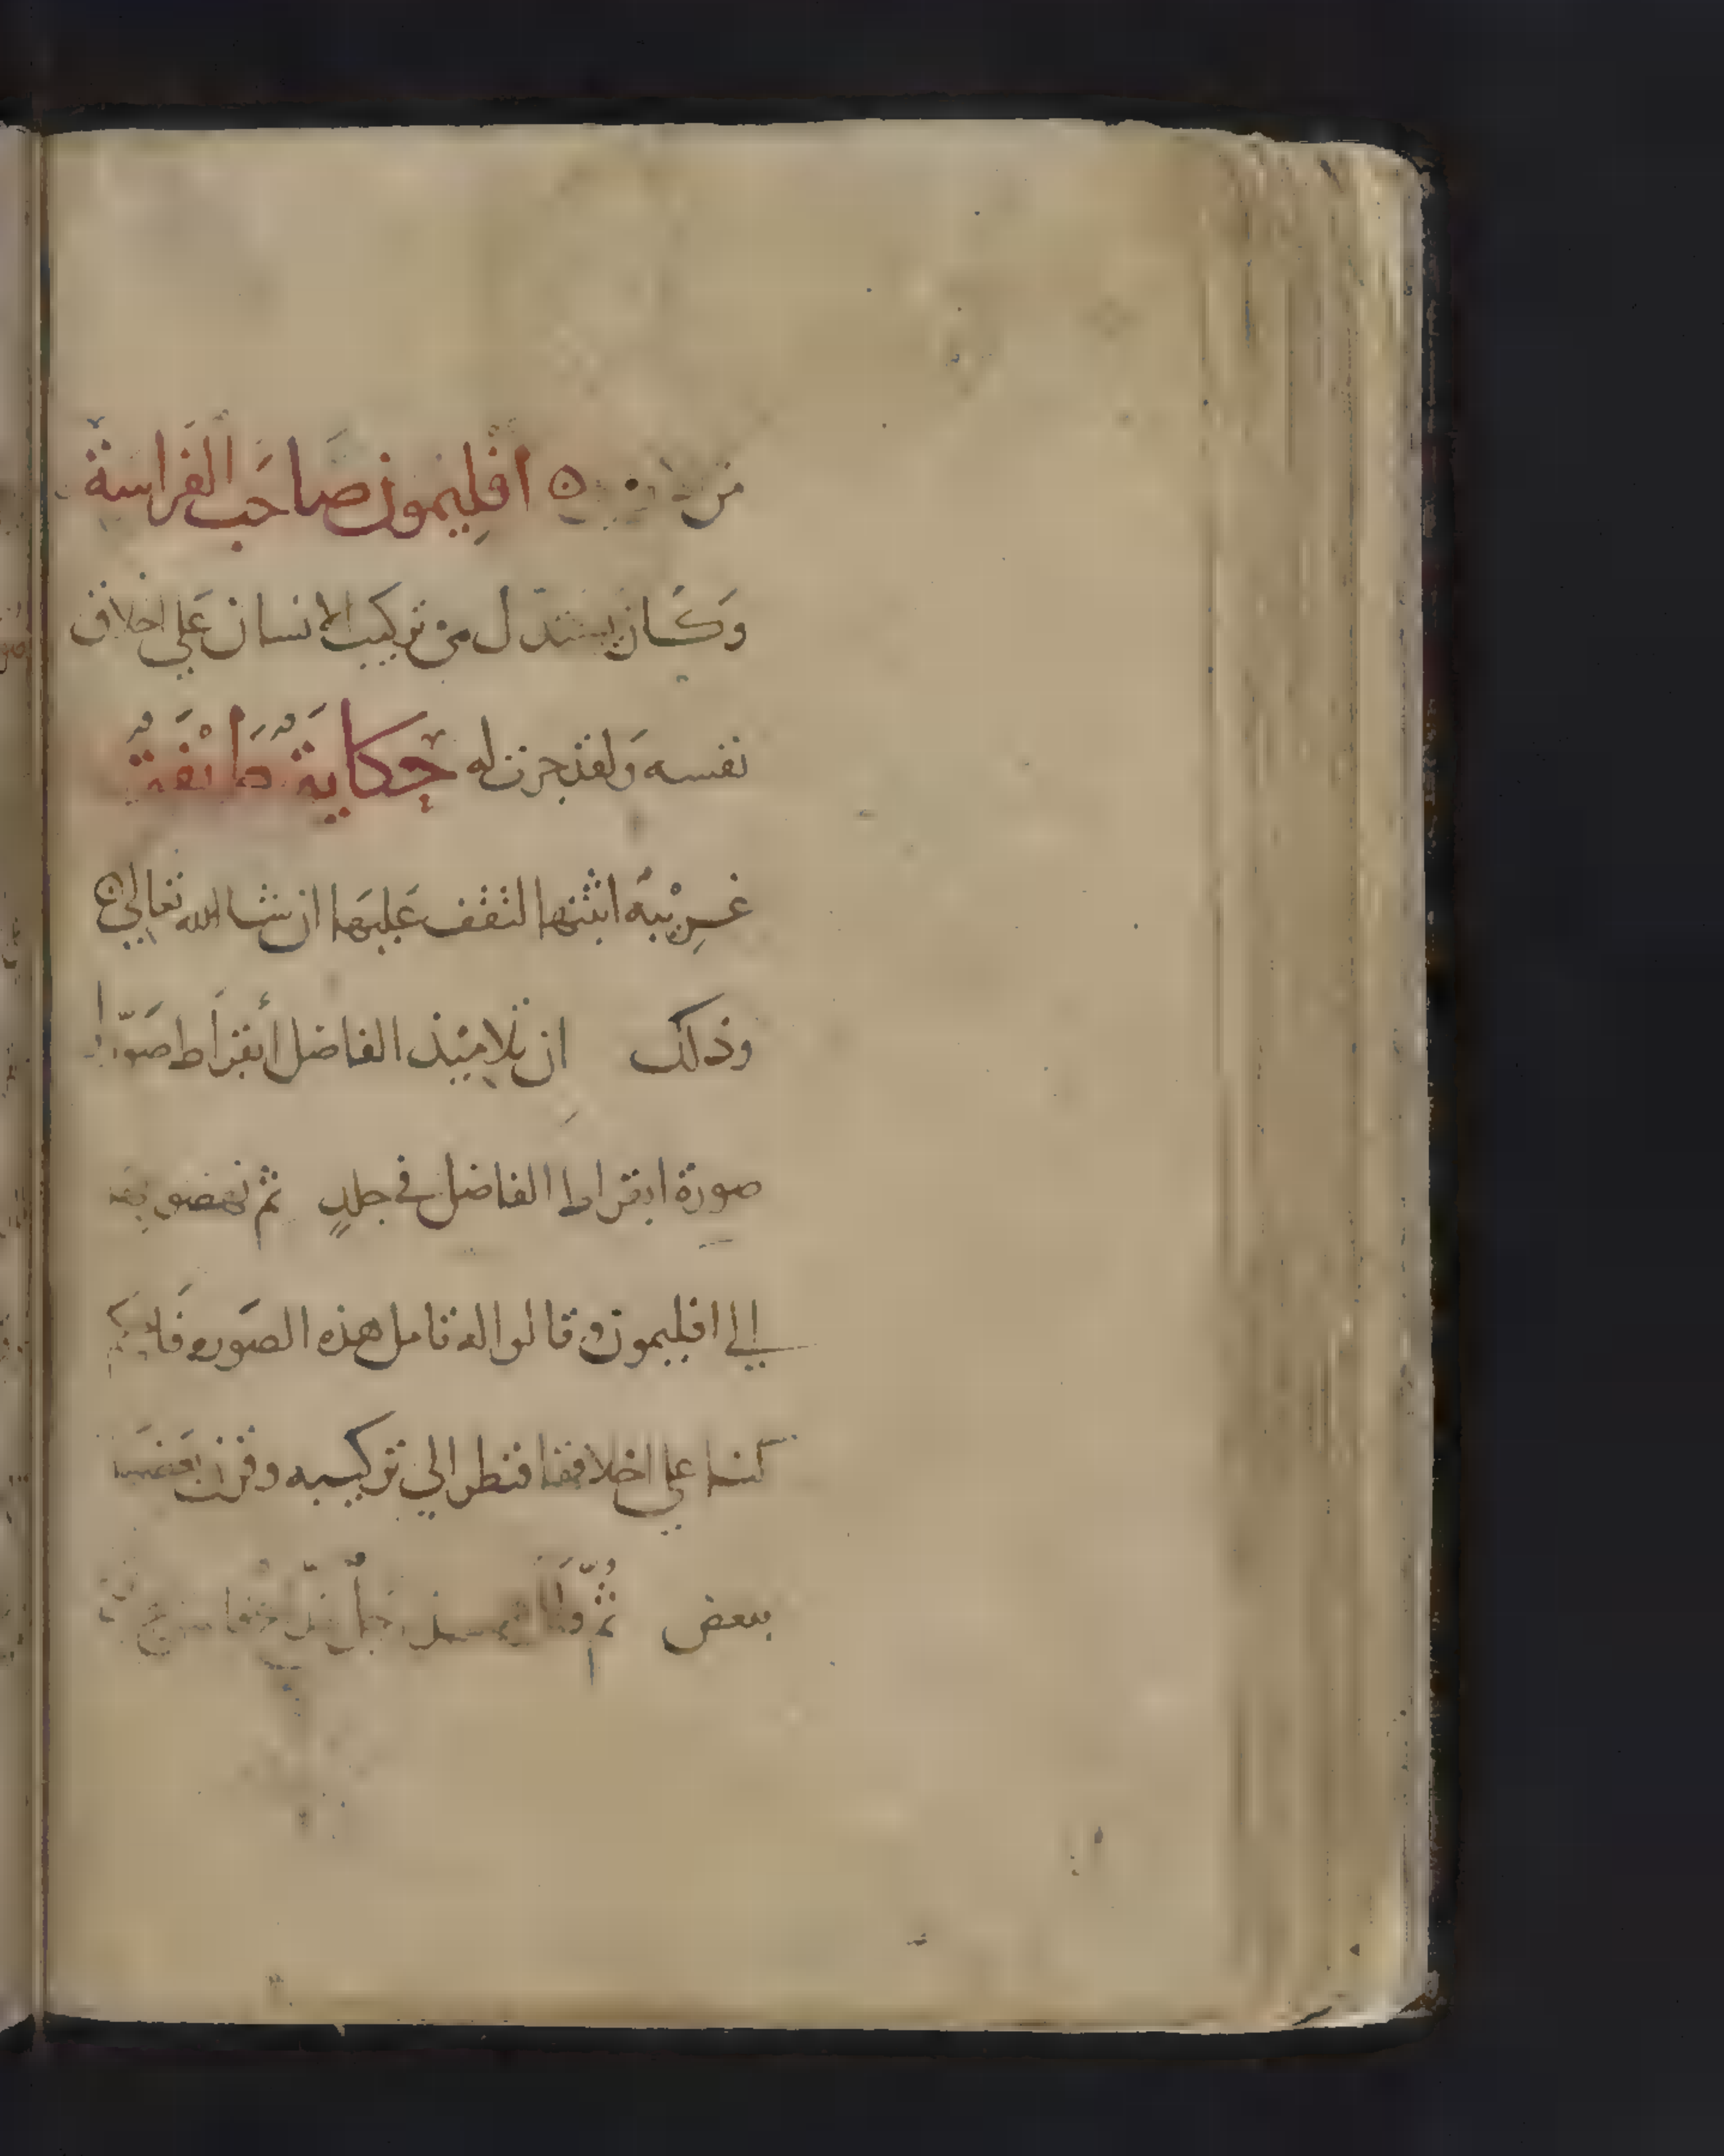 من افليمون صاحب الفراسة
وكان يستدل من تركيب الانسان علي اخلاق
نفسه ولقد جرت له حكاية
غريبة اثبتها لتقف عليها ان شا الله تعالي
وذلك ان تلاميذ الفاضل أبقراط صوّروا
صورة ابقراط الفاضل في جلدٍ ثم نهضو به
الي افليمون وقالوا له تامل هذه الصوره
علي اخلاقها فنظر الي تركيبه وقرن
ببعض ثُمّ